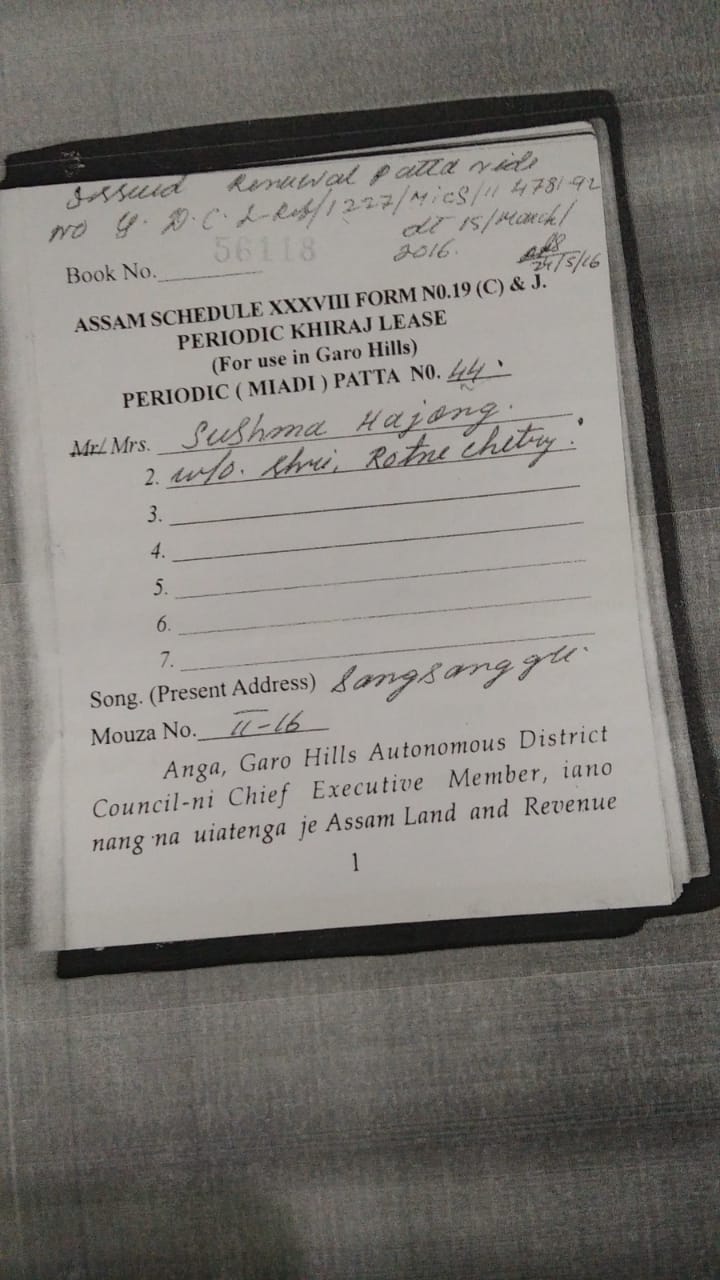 Issued Renewal Patta vide
No G. D. C. L-Rev/1227/MICS/11 4781-92
dt 15/March/
2016.
24/5/16
56118
Book No.
ASSAM SCHEDULE XXXVIII FORM N0.19 (C) & J.
PERIODIC KHIRAJ LEASE
(For use in Garo Hills)
PERIODIC ( MIADI ) PATTA N0. 44.
Mr/ Mrs. Sushma Hajong.
2. w/o. Shri, Rotne Chetry.
3.
4.
5.
6.
7.
Song. (Present Address) Sangsanggu.
Mouza No. II-16
Anga, Garo Hills Autonomous District
Council-ni Chief Executive Member, iano
nang·na uiatenga je Assam Land and Revenue
1